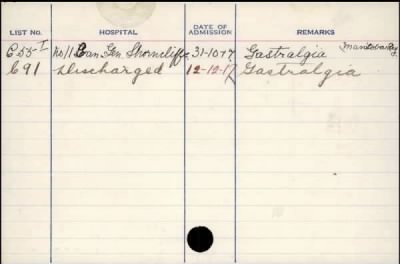 LIST NO. HOSPITAL DATE OF ADMISSION REMARKS
C55-I No 11 Can Gen Shorncliffe 31-10-17 Gastralgia Manitoba Reg
C91 Discharged 12-12-17 Gastralgia